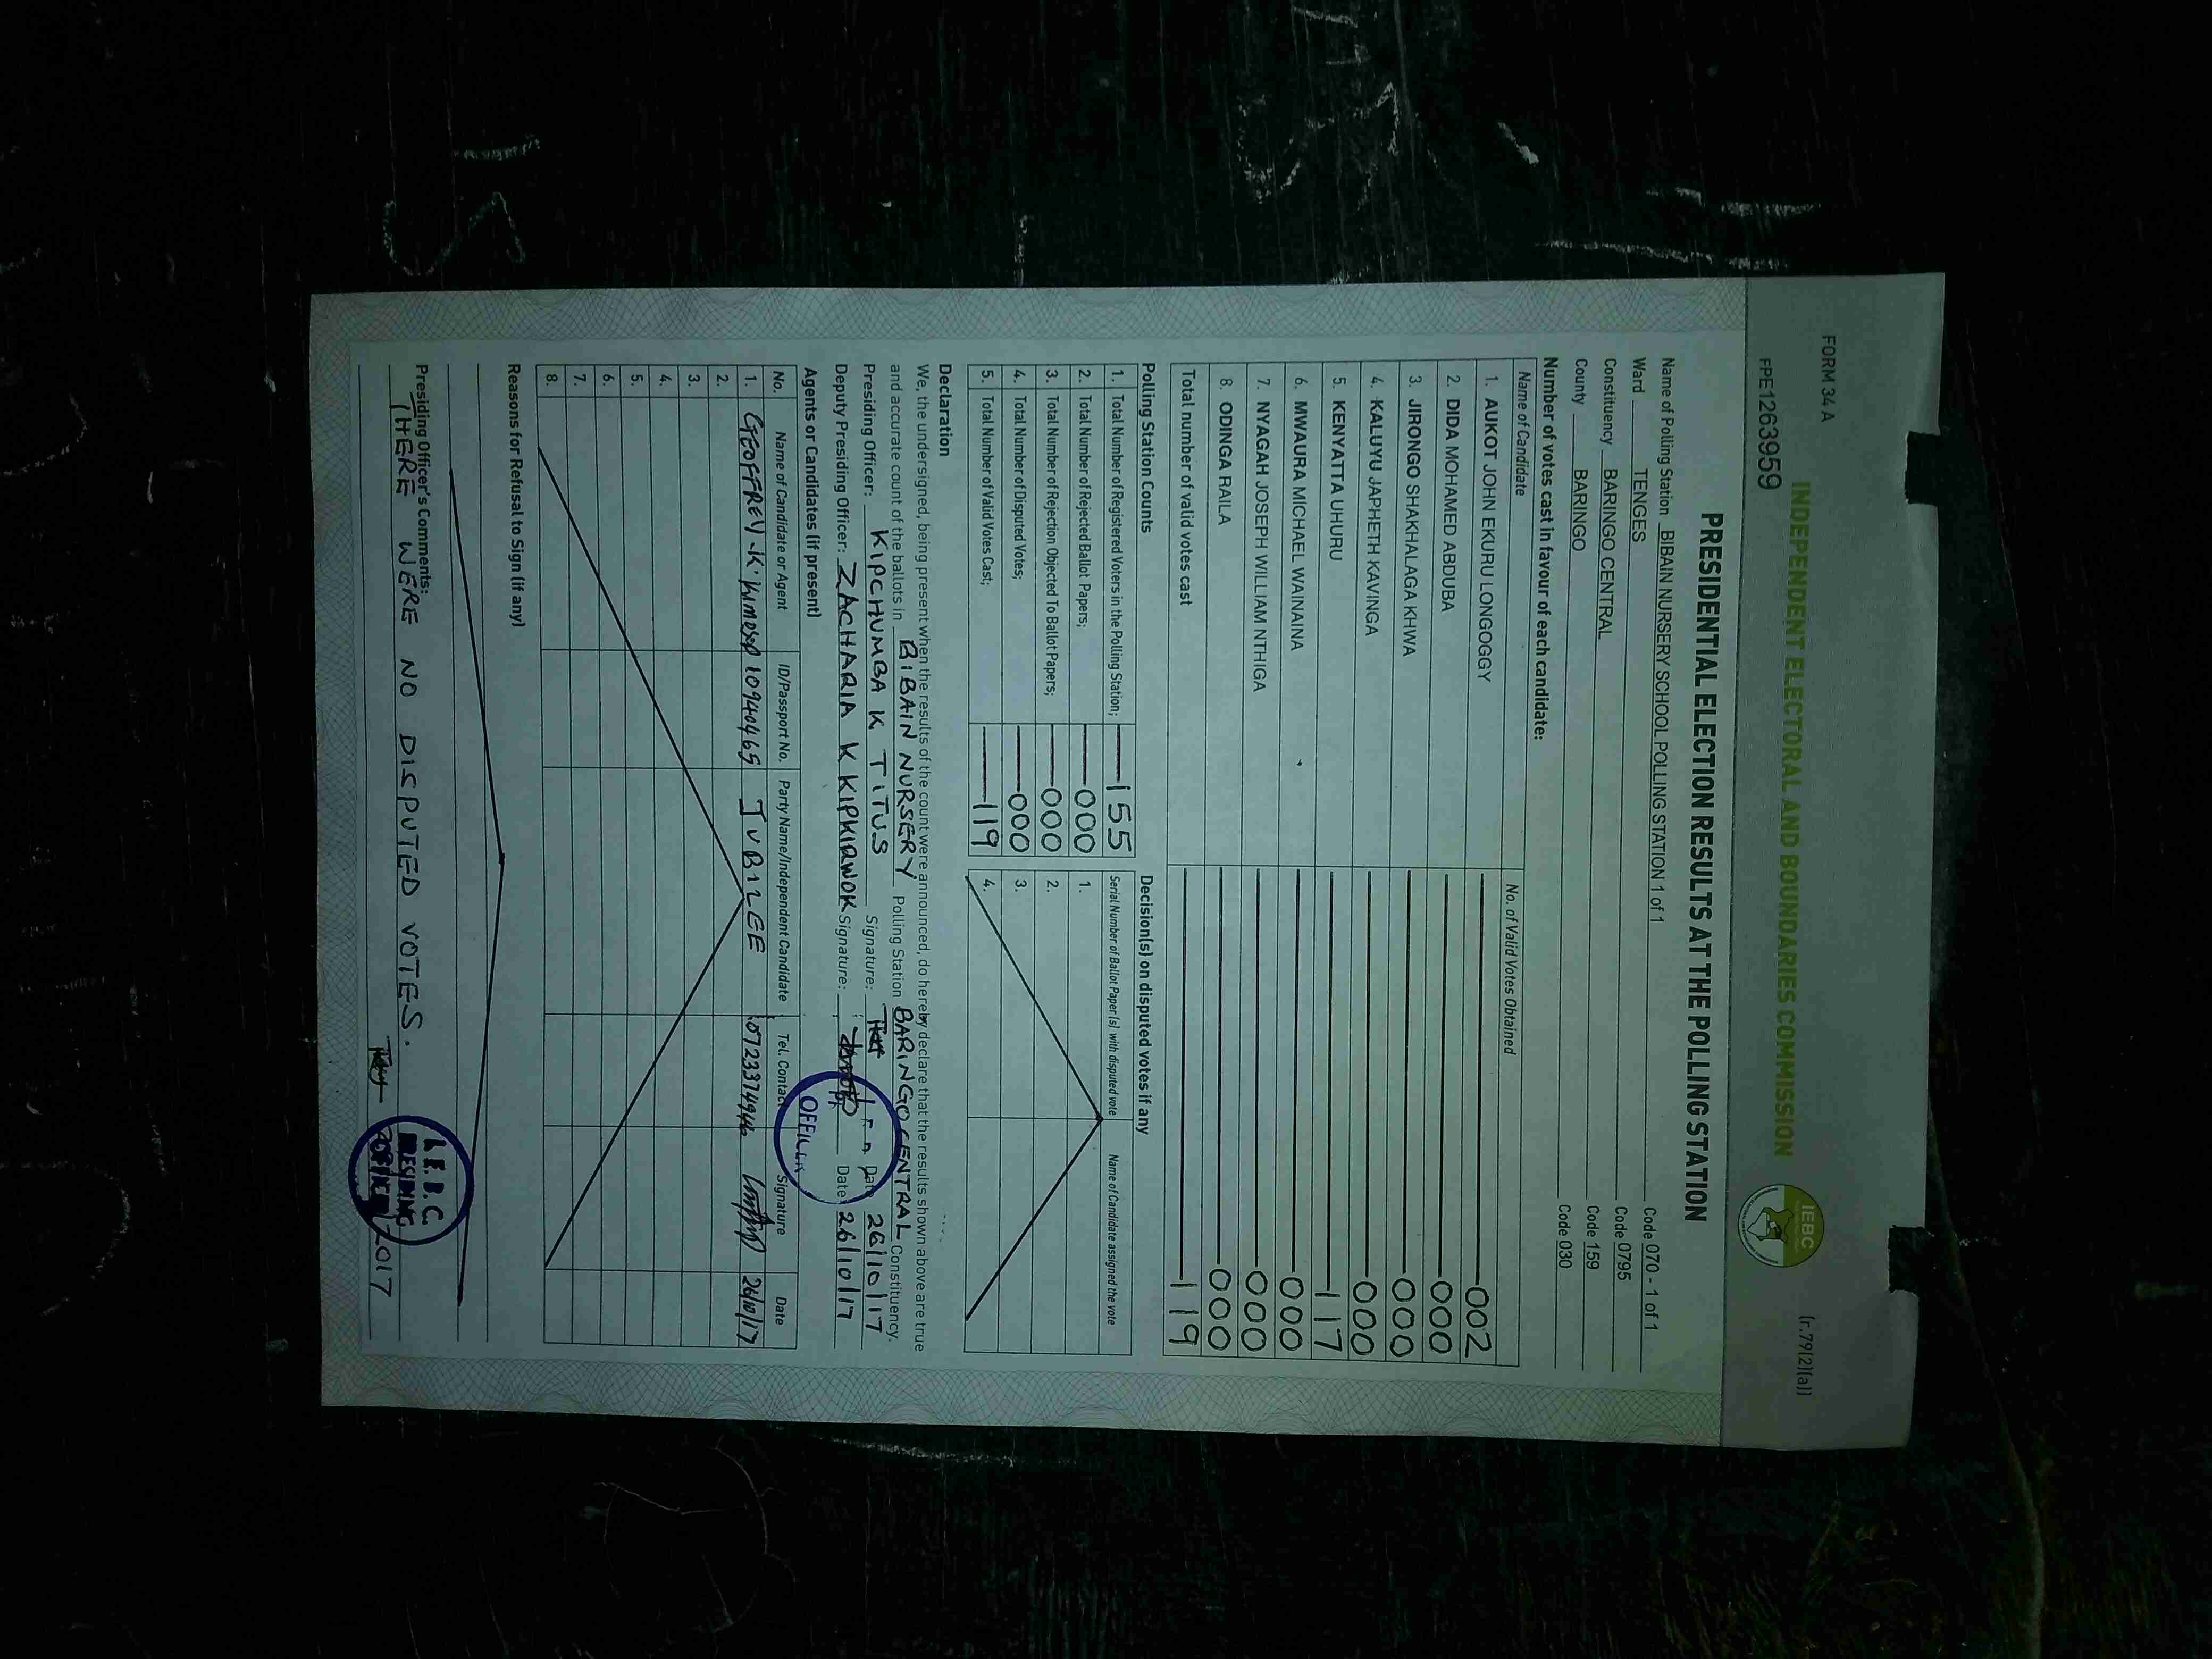 FORM 34 A
(r.79(2)(a))
INDEPENDENT ELECTORAL AND BOUNDARIES COMMISSION
IEBC
FPE1263959
PRESIDENTIAL ELECTION RESULTS AT THE POLLING STATION
Name of Polling Station BIBAIN NURSERY SCHOOL POLLING STATION 1 of 1 Code 070 - 1 of 1
Ward TENGES Code 0795
Constituency BARINGO CENTRAL Code 159
County BARINGO Code 030
Number of votes cast in favour of each candidate:
Name of Candidate No. of Valid Votes Obtained
1. AUKOT JOHN EKURU LONGOGGY 002
2. DIDA MOHAMED ABDUBA 000
3. JIRONGO SHAKHALAGA KHWA 000
4. KALUYU JAPHETH KAVINGA 000
5. KENYATTA UHURU 117
6. MWAURA MICHAEL WAINAINA 000
7. NYAGAH JOSEPH WILLIAM NTHIGA 000
8. ODINGA RAILA 000
Total number of valid votes cast 119
Polling Station Counts
1. Total Number of Registered Voters in the Polling Station; 155
2. Total Number of Rejected Ballot Papers; 000
3. Total Number of Rejection Objected To Ballot Papers; 000
4. Total Number of Disputed Votes; 000
5. Total Number of Valid Votes Cast; 119
Decision(s) on disputed votes if any
Serial Number of Ballot Paper(s) with disputed vote Name of Candidate assigned the vote
1.
2.
3.
4.
Declaration
We, the undersigned, being present when the results of the count were announced, do hereby declare that the results shown above are true
and accurate count of the ballots in BIBAIN NURSERY Polling Station BARINGO CENTRAL Constituency.
Presiding Officer: KIPCHUMBA K TITUS Signature: Date 26/10/17
Deputy Presiding Officer: ZACHARIA K KIPKIRWOK Signature: Date: 26/10/17
Agents or Candidates (if present)
No. Name of Candidate or Agent ID/Passport No. Party Name/Independent Candidate Tel. Contact Signature Date
1. GEOFFREY K. 10940469 JUBILEE 26/10/17
2.
3.
4.
5.
6.
7.
8.
Reasons for Refusal to Sign (if any)
Presiding Officer's Comments:
THERE WERE NO DISPUTED VOTES.
I.E.B.C.
PRESIDING
2017